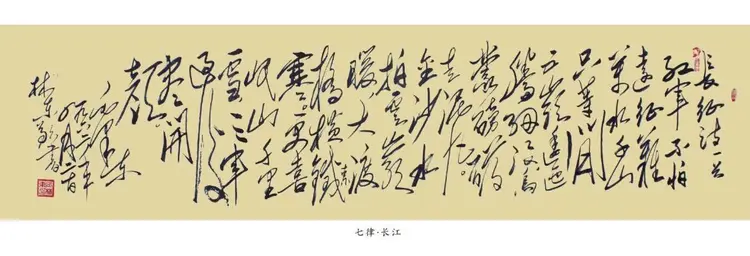 长征诗一首
红军不怕
远征难
萬水千山
只等闲
五岭逶迤
腾细浪乌
蒙磅礴
走泥丸
金沙水
拍雲崖
暖大渡
桥横铁索
寒更喜
岷山千里
雪三军
过后
尽开
颜
毛泽东
一九六二年
七律·长江